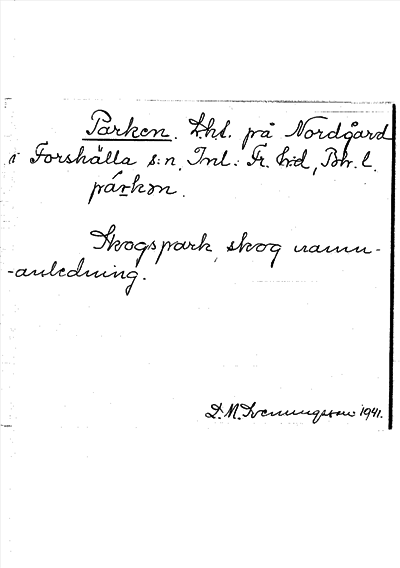 Parken. Lht. på Nordgård
i Forshälla s:n, Inl: Fr. h:d, Boh. l.
pár̠kən.
Skogspark, skog namn-
-anledning.
D. M. Svenungsson 1941.